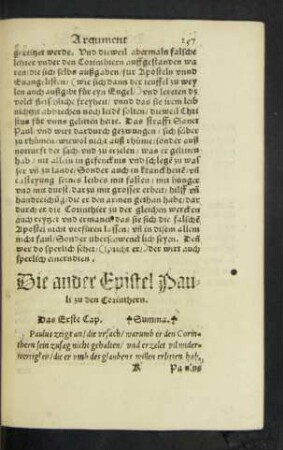 Argument
gereitzet werde. Und dieweil abermals falsche
lehrer under den Corinthern auffgestanden wa
ren/die sich selbs außgaben/für Aposteln unnd
Euangelisten/(wie sich dann der teuffel zu wey
len auch außgibt für eyn Engel) und lereten dz
volck fleischlich freyheit/unnd das sie irem leib
nicht abbrechen noch leidē solten/dieweil Chri
stus für unns gelitten hett. Das strafft Sanct
Paul und wirt dardurch gezwungen/sich selber
zu rhümen/wiewol nicht auß rhümen/sonder auß
notturfft der sach/und zu erzelen/was er gelitten
hab/nit allein in gefencknis und schlegē zu was
ser uñ zu lande/Sonder auch in kranckheit/uñ
casteyung seines leibes mit fasten/mit hunger
und mit durst/darzu mit grosser erbeit/hilff uñ
handreichūg/die er den armen gethan habe/dar
durch er die Corinthier zu der gleichen wercken
auch reytzt und ermanet/das sie sich die falschē
Apostel nicht verfüren lassen/uñ in disem allem
nicht faul/Sonder überschwencklich seyen. Deñ
wer do sperlich sehet/(spricht er/) der wirt auch
sperlich einerndten.
Die ander Epistel Pau-
li zu den Corinthern.
Das Erste Cap. Summa.
Paulus zeygt an/die ursach/warumb er den Corin-
thern sein zusag nicht gehalten/und erzelet vil wider-
wertigkeit/die er umb des glaubens willen erlitten hab,